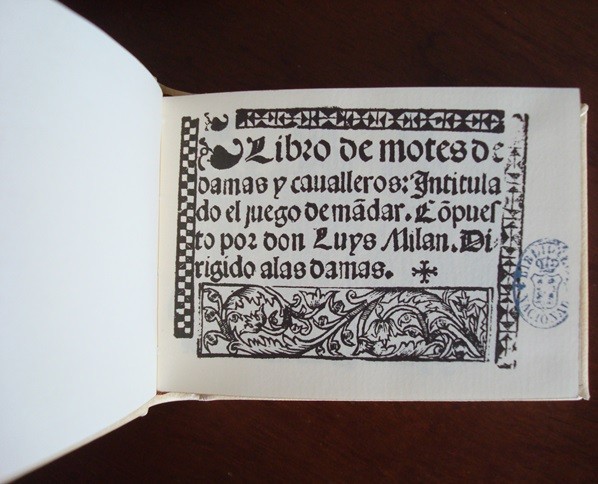 Libro de motes de
damas y caualleros: Intitula
do el juego de mãdar. Cõpues
to por don Luys Milan. Di
rigido alas damas.
BIBLIOTECA NACIONAL